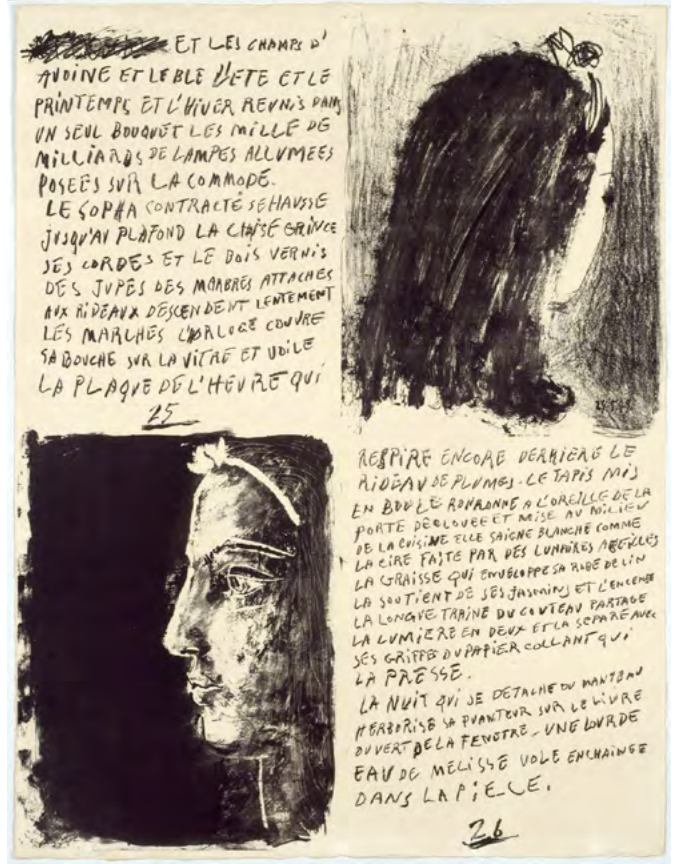 ET LES CHAMPS D'
AVOINE ET LE BLE L'ETE ET LE
PRINTEMPS ET L'HIVER REUNIS DANS
UN SEUL BOUQUET LES MILLE DE
MILLIARDS DE LAMPES ALLUMEES
POSEES SUR LA COMMODE.
LE SOPHA CONTRACTÉ SE HAUSSE
JUSQU'AU PLAFOND LA CHAISE GRINCE
SES CORDES ET LE BOIS VERNIS
DES JUPES DES MARBRES ATTACHES
AUX RIDEAUX DESCENDENT LENTEMENT
LES MARCHES L'ORLOGE COUVRE
SA BOUCHE SUR LA VITRE ET VOILE
LA PLAQUE DE L'HEURE QUI
25
RESPIRE ENCORE DERRIERE LE
RIDEAU DE PLUMES. LE TAPIS MIS
EN BOULE RONRONNE A L'OREILLE DE LA
PORTE DECLOUEE ET MISE AU MILIEU
DE LA CUISINE ELLE SAIGNE BLANCHE COMME
LA CIRE FAITE PAR DES LUNAIRES ABEILLES
LA GRAISSE QUI ENVELOPPE SA ROBE DE LIN
LA SOUTIENT DE SES JASMINS ET L'ENCENSE
LA LONGUE TRAINE DU COUTEAU PARTAGE
LA LUMIERE EN DEUX ET LA SEPARE AVEC
SES GRIFFES DU PAPIER COLLANT QUI
LA PRESSE.
LA NUIT QUI SE DETACHE DU MANTEAU
HERBORISE SA PUANTEUR SUR LE LIVRE
OUVERT DE LA FENETRE - UNE LOURDE
EAU DE MELISSE VOLE ENCHAINEE
DANS LA PIECE.
26